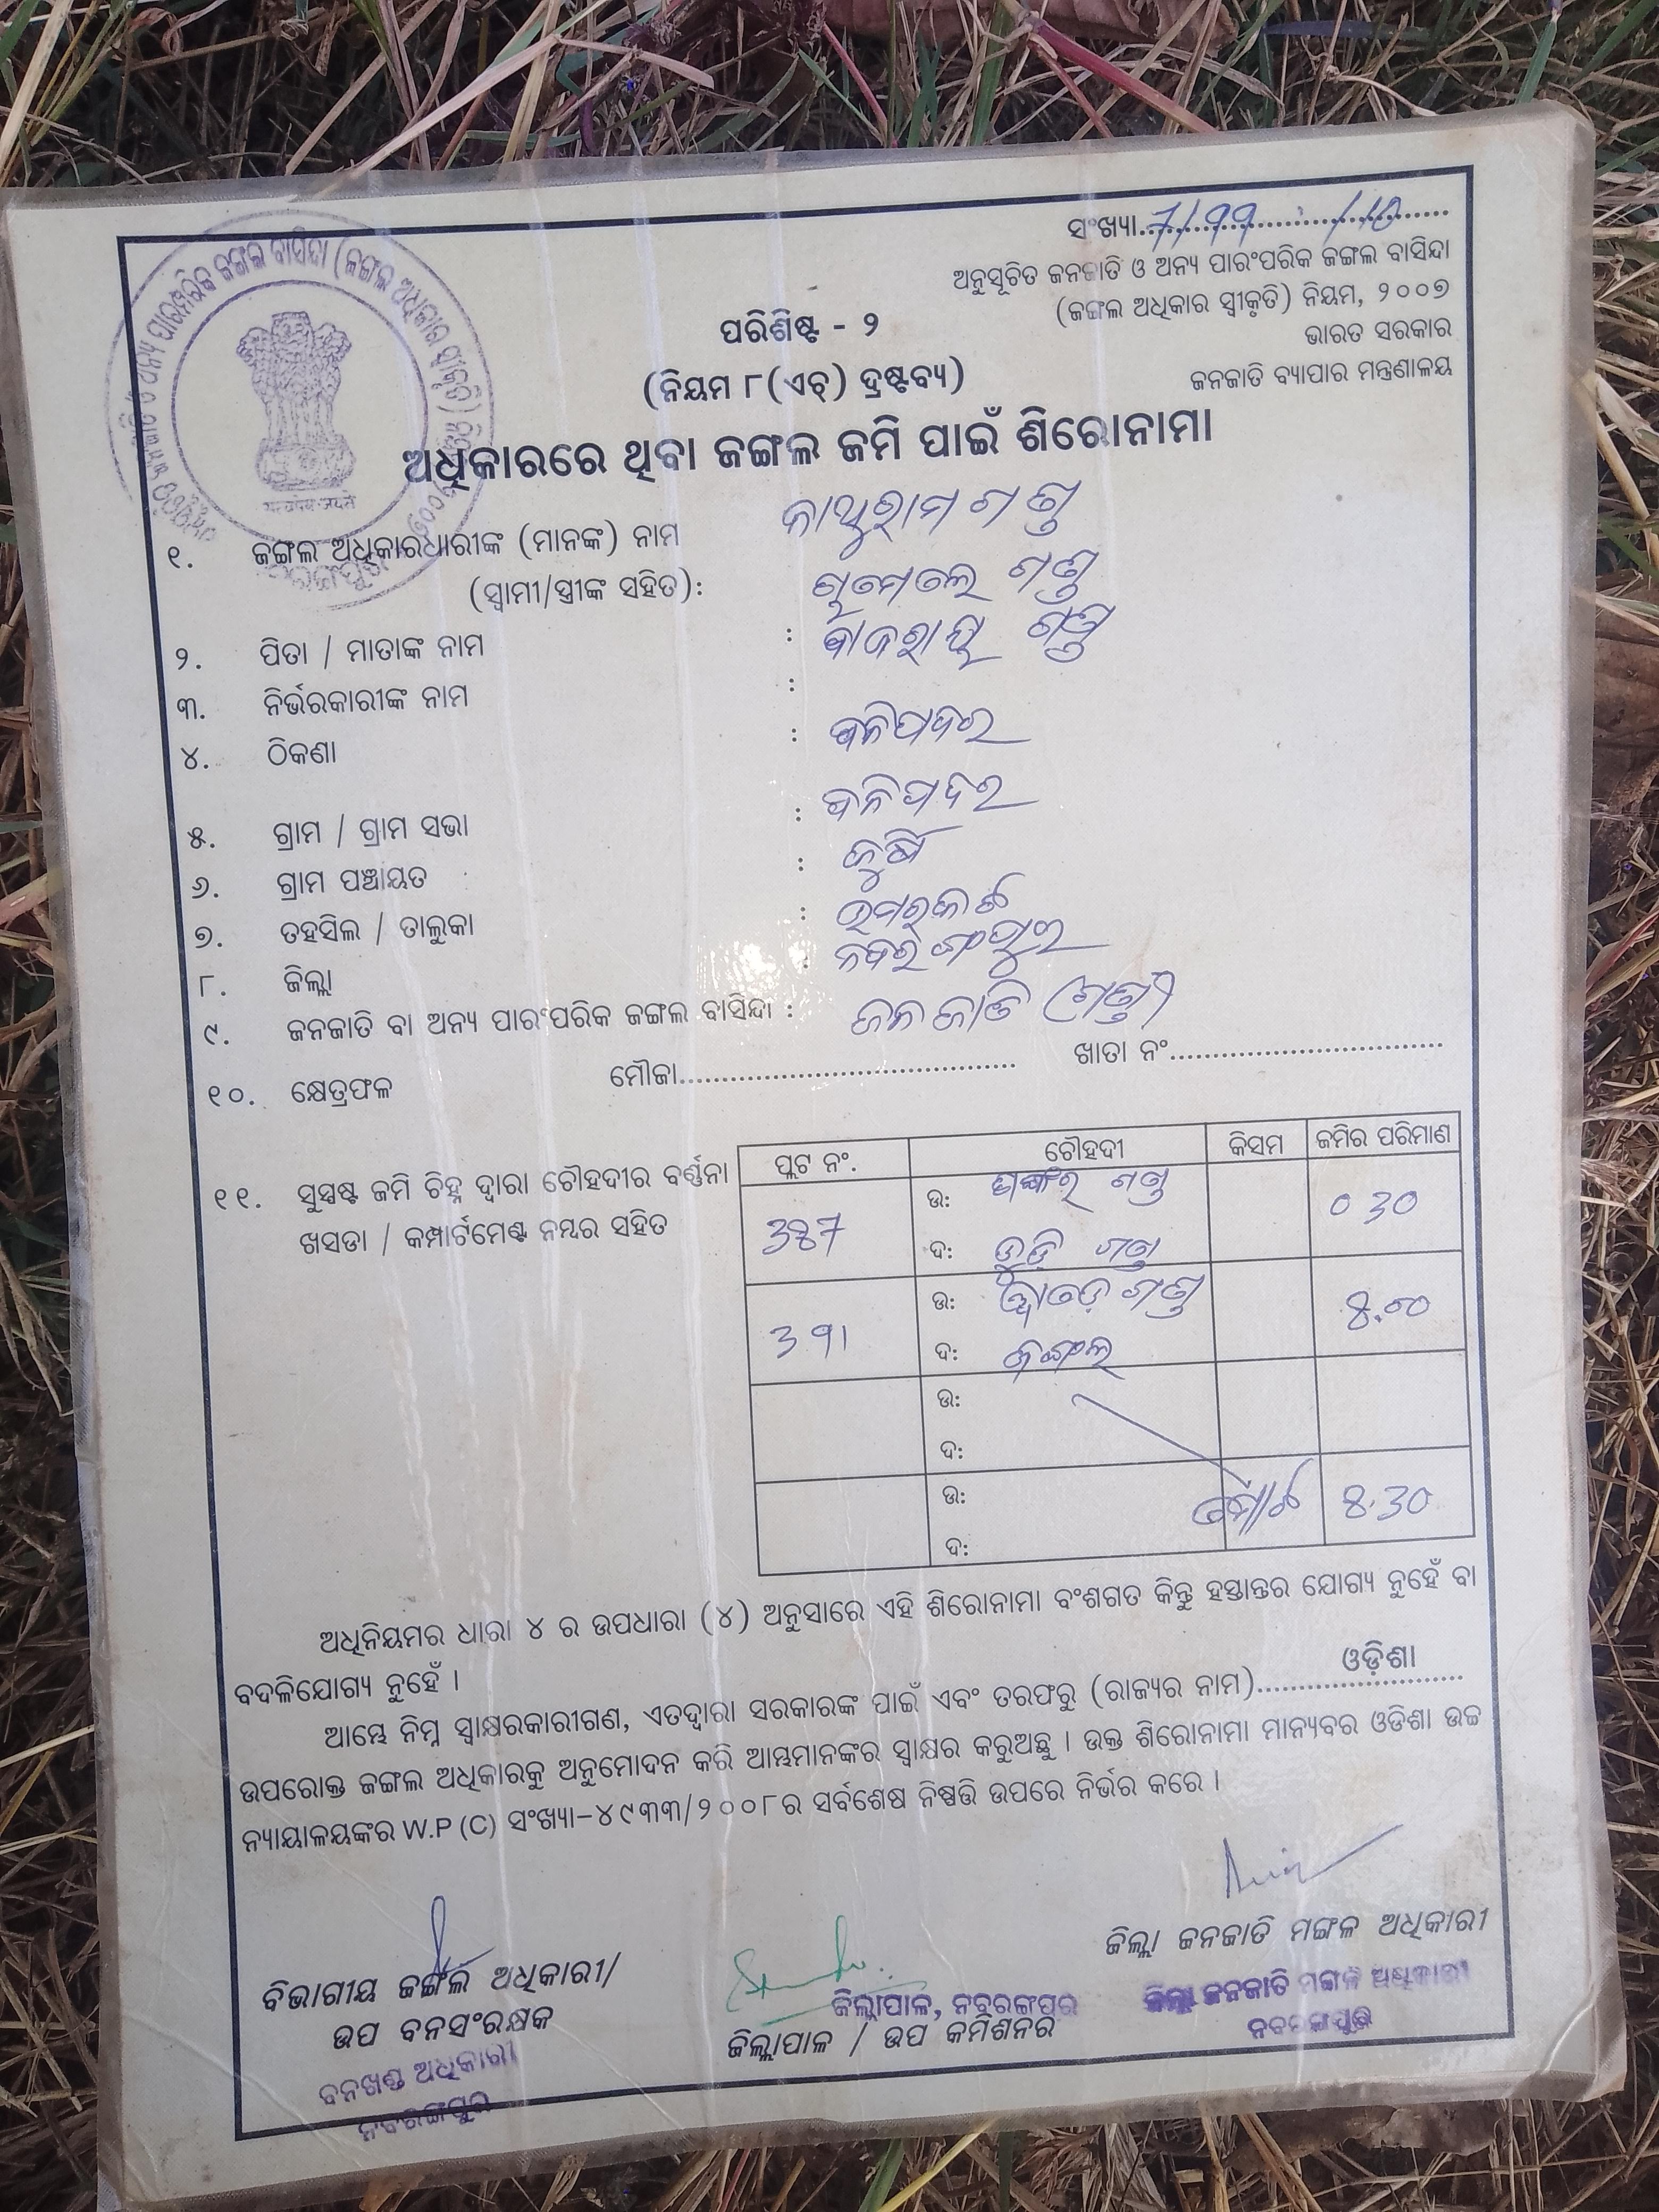 ସଂଖ୍ୟା
ଅନୁସୂଚିତ ଜନଜାତି ଓ ଅନ୍ୟ ପାରଂପରିକ ଜଙ୍ଗଲ ବାସିନ୍ଦା
(ଜଙ୍ଗଲ ଅଧିକାର ସ୍ୱୀକୃତି) ନିୟମ, ୨୦୦୭
ଭାରତ ସରକାର
ଜନଜାତି ବ୍ୟାପାର ମନ୍ତ୍ରଣାଳୟ
ପରିଶିଷ୍ଟ - ୨
(ନିୟମ ୮(ଏଚ୍) ଦ୍ରଷ୍ଟବ୍ୟ)
ଅଧିକାରରେ ଥିବା ଜଙ୍ଗଲ ଜମି ପାଇଁ ଶିରୋନାମା
୧. ଜଙ୍ଗଲ ଅଧିକାରଧାରୀଙ୍କ (ମାନଙ୍କ) ନାମ ଗଣ୍ଡ
(ସ୍ୱାମୀ/ସ୍ତ୍ରୀଙ୍କ ସହିତ): ଗଣ୍ଡ
୨. ପିତା / ମାତାଙ୍କ ନାମ : ଗଣ୍ଡ
୩. ନିର୍ଭରକାରୀଙ୍କ ନାମ :
୪. ଠିକଣା : ବଳିପଦର
୫. ଗ୍ରାମ / ଗ୍ରାମ ସଭା : ବଳିପଦର
୬. ଗ୍ରାମ ପଞ୍ଚାୟତ :
୭. ତହସିଲ / ତାଲୁକା : ଉମରକୋଟ
୮. ଜିଲ୍ଲା : ନବରଂଗପୁର
୯. ଜନଜାତି ବା ଅନ୍ୟ ପାରଂପରିକ ଜଙ୍ଗଲ ବାସିନ୍ଦା : ଜନଜାତି (ଗଣ୍ଡ)
୧୦. କ୍ଷେତ୍ରଫଳ ମୌଜା ଖାତା ନଂ
୧୧. ସୁସ୍ପଷ୍ଟ ଜମି ଚିହ୍ନ ଦ୍ୱାରା ଚୌହଦୀର ବର୍ଣ୍ଣନା
ଖସଡା / କମ୍ପାର୍ଟମେଣ୍ଟ ନମ୍ବର ସହିତ
ପ୍ଲଟ ନଂ. ଚୌହଦୀ କିସମ ଜମିର ପରିମାଣ
ଉ: ଗଣ୍ଡ 0 30
ଦ: ଗଣ୍ଡ
ଉ: ଗଣ୍ଡ
ଦ: ଜଙ୍ଗଲ
ଉ:
ଦ:
ଉ: ମୋଟ
ଦ:
ଅଧିନିୟମର ଧାରା ୪ ର ଉପଧାରା (୪) ଅନୁସାରେ ଏହି ଶିରୋନାମା ବଂଶଗତ କିନ୍ତୁ ହସ୍ତାନ୍ତର ଯୋଗ୍ୟ ନୁହେଁ ବା
ବଦଳିଯୋଗ୍ୟ ନୁହେଁ ।
ଆମ୍ଭେ ନିମ୍ନ ସ୍ୱାକ୍ଷରକାରୀଗଣ, ଏତଦ୍ୱାରା ସରକାରଙ୍କ ପାଇଁ ଏବଂ ତରଫରୁ (ରାଜ୍ୟର ନାମ) ଓଡ଼ିଶା
ଉପରୋକ୍ତ ଜଙ୍ଗଲ ଅଧିକାରକୁ ଅନୁମୋଦନ କରି ଆମ୍ଭମାନଙ୍କର ସ୍ୱାକ୍ଷର କରୁଅଛୁ । ଉକ୍ତ ଶିରୋନାମା ମାନ୍ୟବର ଓଡିଶା ଉଚ୍ଚ
ନ୍ୟାୟାଳୟଙ୍କର W.P (C) ସଂଖ୍ୟା-୪୯୩୩/୨୦୦୮ର ସର୍ବଶେଷ ନିଷ୍ପତ୍ତି ଉପରେ ନିର୍ଭର କରେ ।
ବିଭାଗୀୟ ଜଙ୍ଗଲ ଅଧିକାରୀ/
ଉପ ବନସଂରକ୍ଷକ
ବନଖଣ୍ଡ ଅଧିକାରୀ
ନବରଙ୍ଗପୁର
ଜିଲ୍ଲାପାଳ, ନବରଙ୍ଗପୁର
ଜିଲ୍ଲାପାଳ / ଉପ କମିଶନର
ଜିଲ୍ଲା ଜନଜାତି ମଙ୍ଗଳ ଅଧିକାରୀ
ଜିଲ୍ଲା ଜନଜାତି ମଙ୍ଗଳ ଅଧିକାରୀ
ନବରଙ୍ଗପୁର